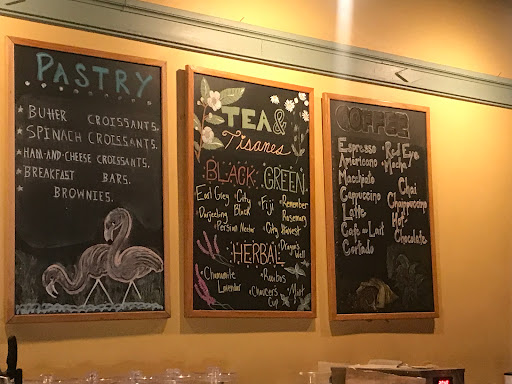 PASTRY
* BUTTER CROISSANTS.
* SPINACH CROISSANTS.
* HAM-AND-CHEESE CROISSANTS.
* BREAKFAST BARS.
* BROWNIES.
TEA &
Tisanes
BLACK
Earl Grey
City Black
Darjeeling
Persian Nectar
GREEN
Fiji
Remember Rosemary
City Harvest
Dragon's Well
HERBAL
Chamomile Lavender
Rooibos
Chaucers Cup
Mint
COFFEE
Espresso
Americano
Macchiato
Cappuccino
Latte
Cafe au Lait
Cortado
Red Eye
Mocha
Chai
Chappuccino
Hot
Chocolate